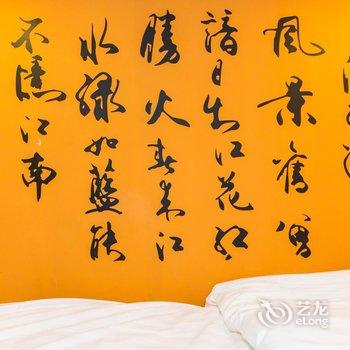 風景舊曾
諳日出江花紅
勝火春来江
水綠如藍能
不憶江南
艺龙
eLong